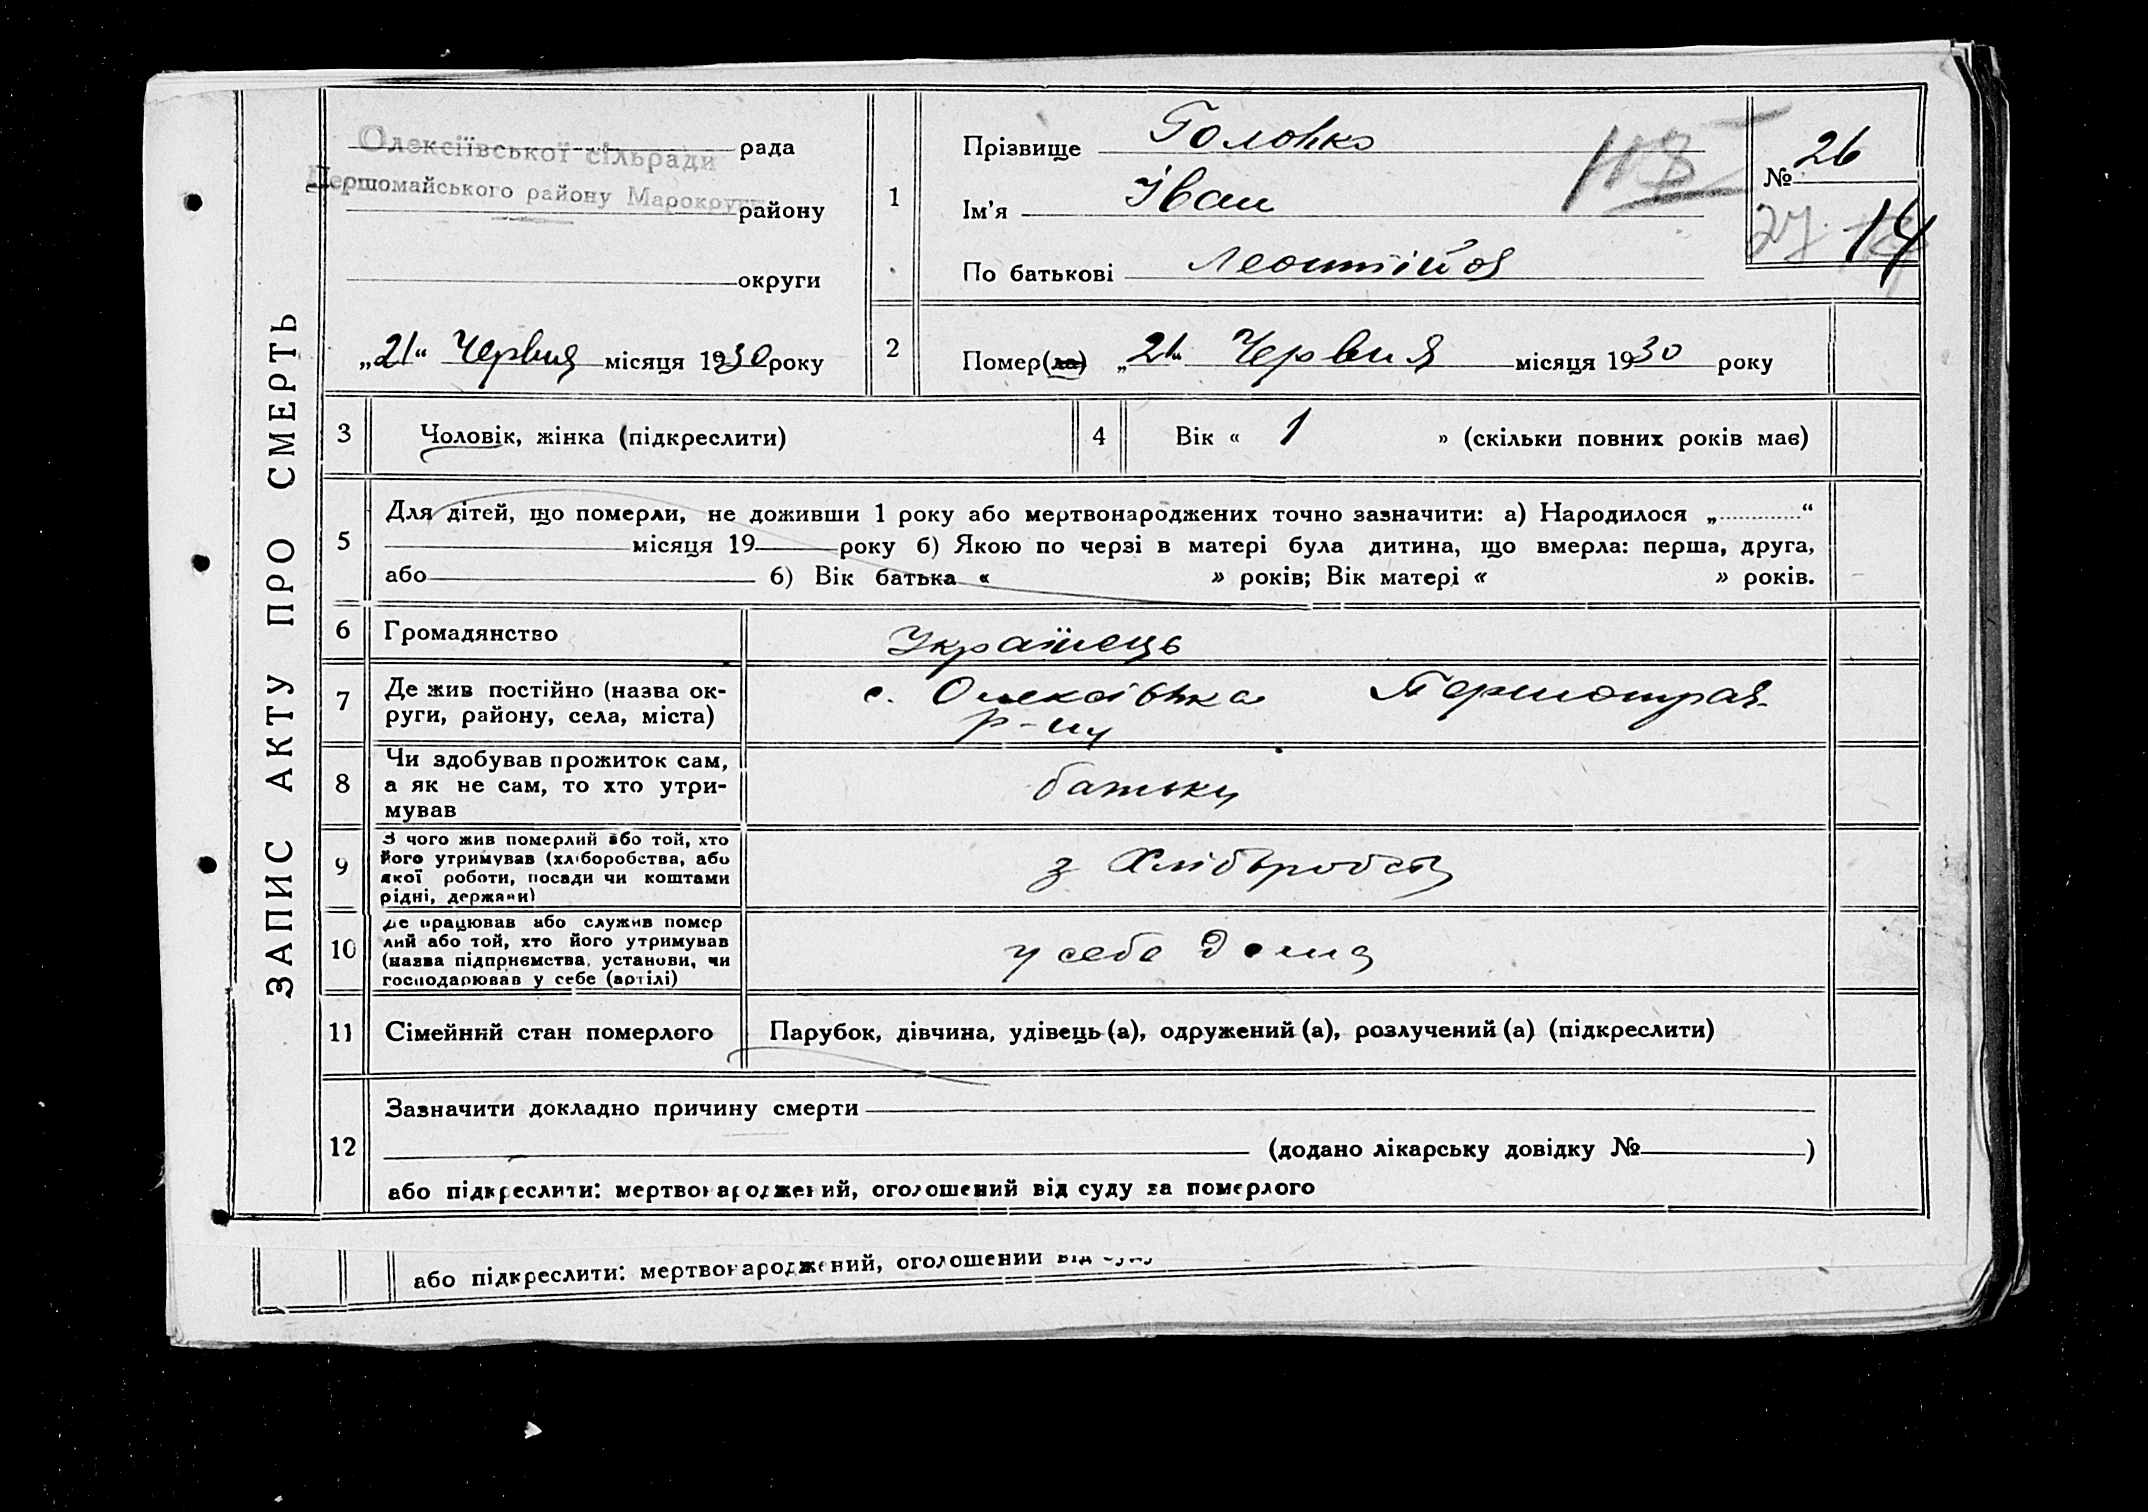 ЗАПИС АКТУ ПРО СМЕРТЬ
Олексіївської сільради рада
Першомайського району Марокруги району
округи
„21“ Червня місяця 1930 року
1
Прізвище Головко
Ім’я Іван
По батькові Леонтійов
№ 26
27 14
2
Помер(ла) „21“ Червня місяця 1930 року
3 Чоловік, жінка (підкреслити)
4 Вік « 1 » (скільки повних років має)
5
Для дітей, що померли, не доживши 1 року або мертвонароджених точно зазначити: а) Народилося „ “
місяця 19 року б) Якою по черзі в матері була дитина, що вмерла: перша, друга,
або б) Вік батька « » років; Вік матері « » років.
6 Громадянство Українець
7 Де жив постійно (назва ок-
руги, району, села, міста)
с. Олексіївка
р-ну
8 Чи здобував прожиток сам,
а як не сам, то хто утри-
мував
батьки
9 З чого жив померлий або той, хто
його утримував (хліборобства, або
якої роботи, посади чи коштами
рідні, держави)
з Хліборобств
10 Де працював або служив помер
лий або той, хто його утримував
(назва підприємства, установи, чи
господарював у себе (артілі)
у себе дома
11 Сімейний стан померлого Парубок, дівчина, удівець (а), одружений (а), розлучений (а) (підкреслити)
12
Зазначити докладно причину смерти
(додано лікарську довідку № )
або підкреслити: мертвонароджений, оголошений від суду за померлого
або підкреслити: мертвонароджений, оголошений від